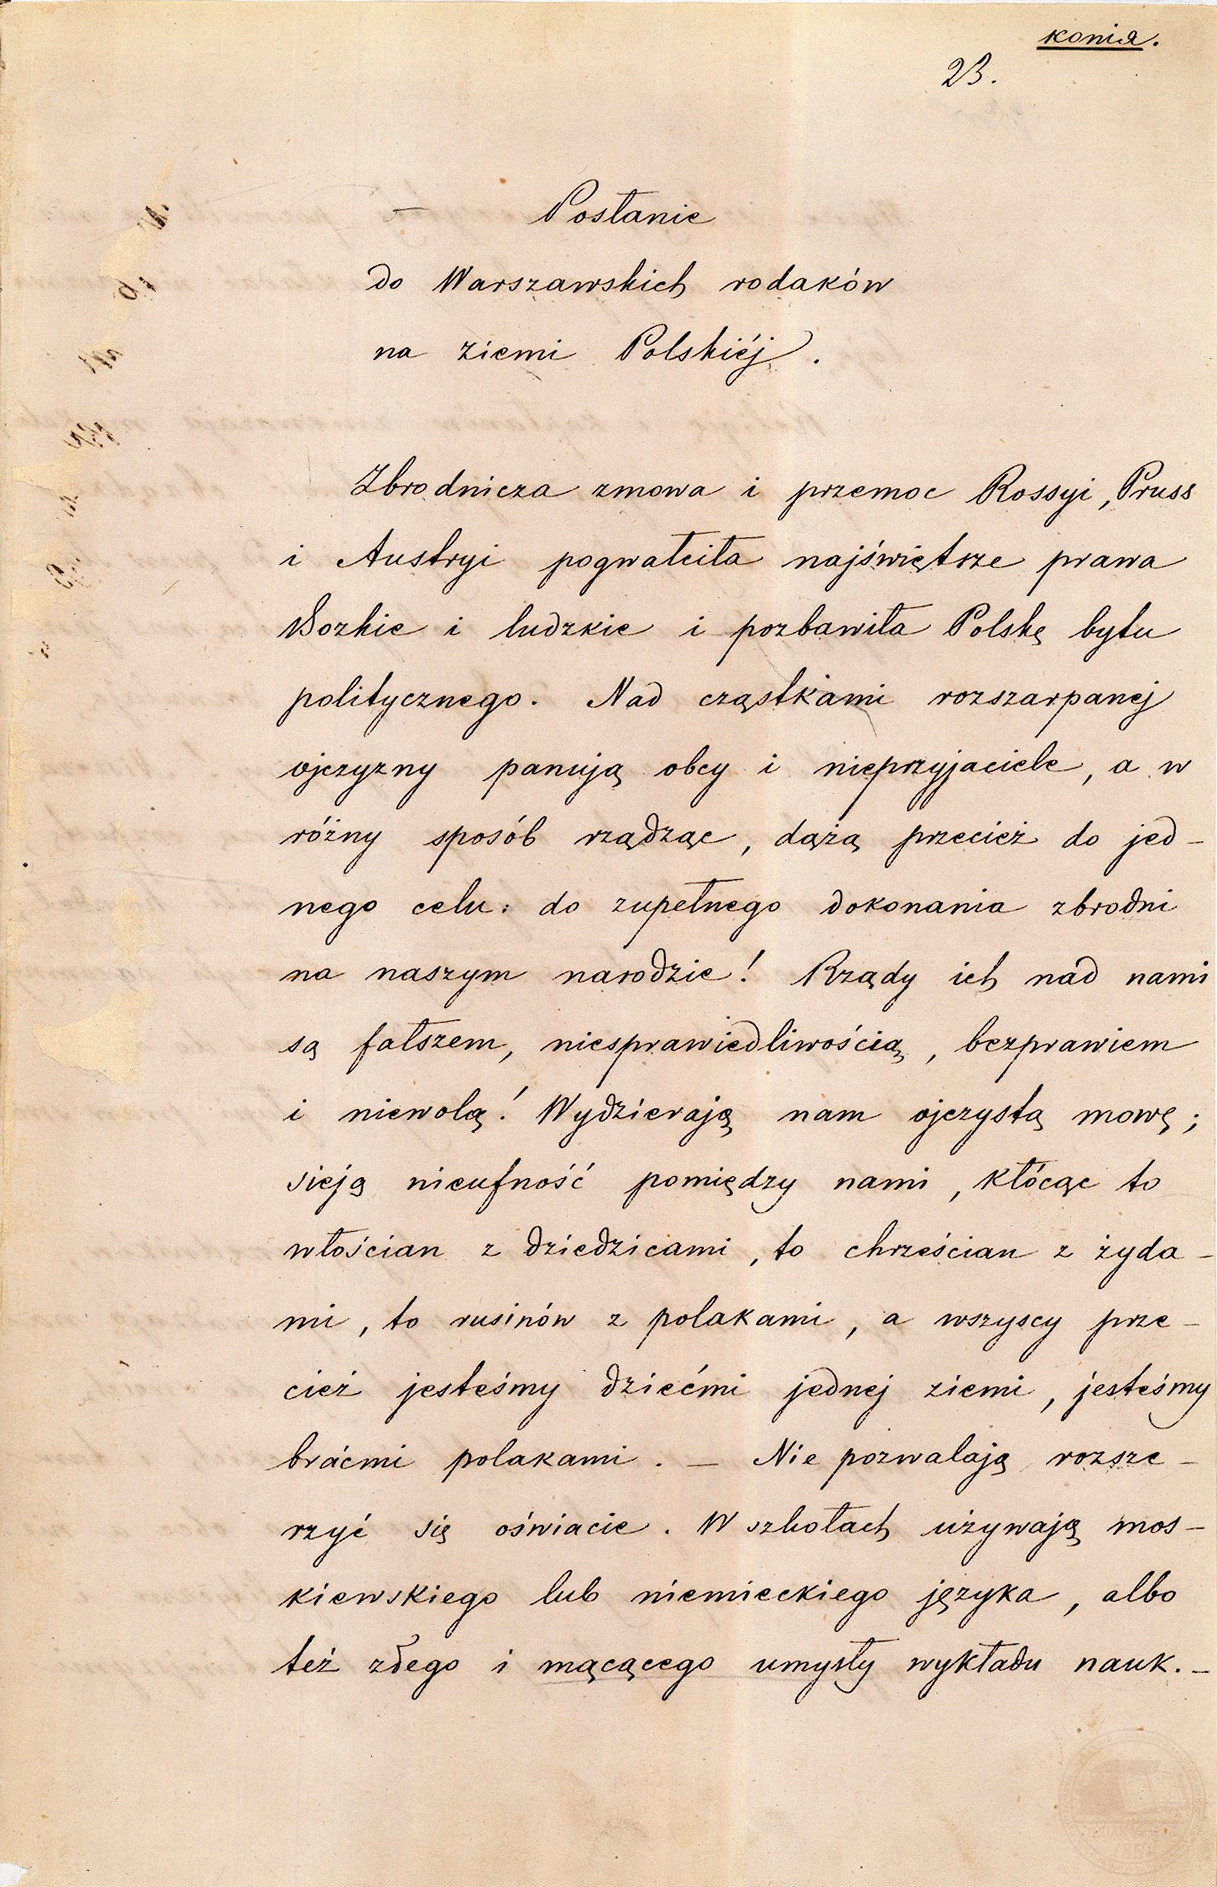 копия.
23.
Posłanie
do Warszawskich rodaków
na ziemi Polskiéj.
Zbrodnicza zmowa i przemoc Rossyi, Pruss
i Austryi pogwałciła najświętsze prawa
Bozkie i ludzkie i pozbawiła Polskę bytu
politycznego. Nad cząstkami rozszarpanej
ojczyzny panują obcy i nieprzyjaciele, a w
różny sposób rządząc, dążą przecież do jed-
nego celu: do zupełnego dokonania zbrodni
na naszym narodzie! Rządy ich nad nami
są fałszem, niesprawiedliwością, bezprawiem
i niewolą! Wydzierają nam ojczystą mowę;
sieją nieufność pomiędzy nami, kłócąc to
włościan z dziedzicami, to chrześcian z żyda-
mi, to rusinów z polakami, a wszyscy prze-
cież jesteśmy dziećmi jednej ziemi, jesteśmy
braćmi polakami. - Nie pozwalają rozsze-
rzyć się oświacie. W szkołach używają mos-
kiewskiego lub niemieckiego języka, albo
też złego i mącącego umysły wykładu nauk. -